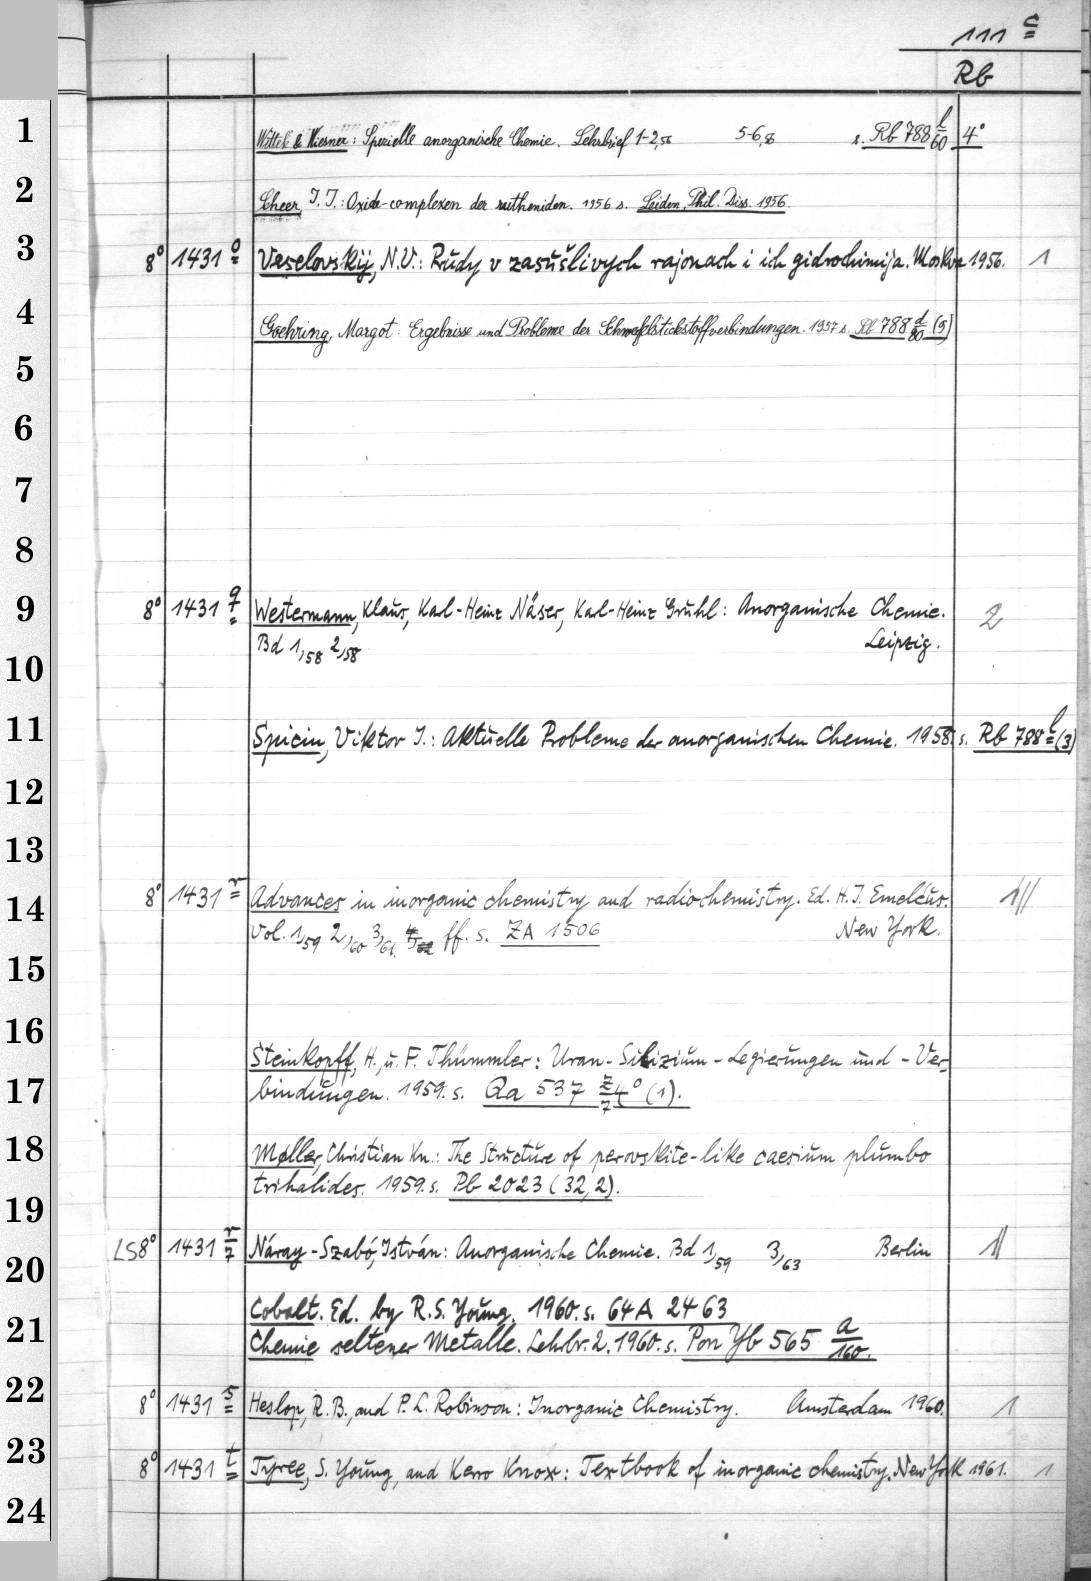 111 c
Rb
1
Wittek & Wiesner: Spezielle anorganische Chemie. Lehrbrief 1-2,56 5-6,8 s. Rb 788 l/60 4°
2
Scheer, J. J.: Oxide-complexen der rutheniden. 1956 s. Leiden, Phil. Diss. 1956.
3
8° 1431 o Veselovskij, N.V.: Rudy v zasušlivych rajonach i ich gidrochimija. Moskva 1956. 1
4
Goehring, Margot: Ergebnisse und Probleme der Schwefelstickstoffverbindungen. 1957 s. Rb 788 d/80 (9)
5
6
7
8
9
8° 1431 q Westermann, Klaus, Karl-Heinz Näser, Karl-Heinz Gruhl: Anorganische Chemie. 2
Bd 1,58 2,58 Leipzig.
10
11
Spicin, Viktor I.: Aktuelle Probleme der anorganischen Chemie. 1958. s. Rb 788 l (3)
12
13
14
8° 1431 r Advances in inorganic chemistry and radiochemistry. Ed. H. J. Emeléus. 1//
Vol. 1,59 2,60 3,61. ff. s. ZA 1506 New York.
15
16
Steinkopff, H., u. F. Thümmler: Uran-Silizium-Legierungen und -Ver-
17
bindungen. 1959. s. Qa 537 z/7 4° (1).
18
Møller, Christian Kn.: The Structure of perovskite-like caesium plumbo
trihalides. 1959. s. Pb 2023 (32,2).
19
LS 8° 1431 r/7 Náray-Szabó, István: Anorganische Chemie. Bd 1,59 3,63 Berlin 1/
20
Cobalt. Ed. by R. S. Young. 1960. s. 64 A 2463
21
Chemie seltener Metalle. Lehrbr. 2. 1960. s. Pon Yb 565 a/160.
22
8° 1431 s Heslop, R. B., and P. L. Robinson: Inorganic Chemistry. Amsterdam 1960. 1
23
8° 1431 t Tyree, S. Young, and Kerro Knox: Textbook of inorganic chemistry. New York 1961. 1
24